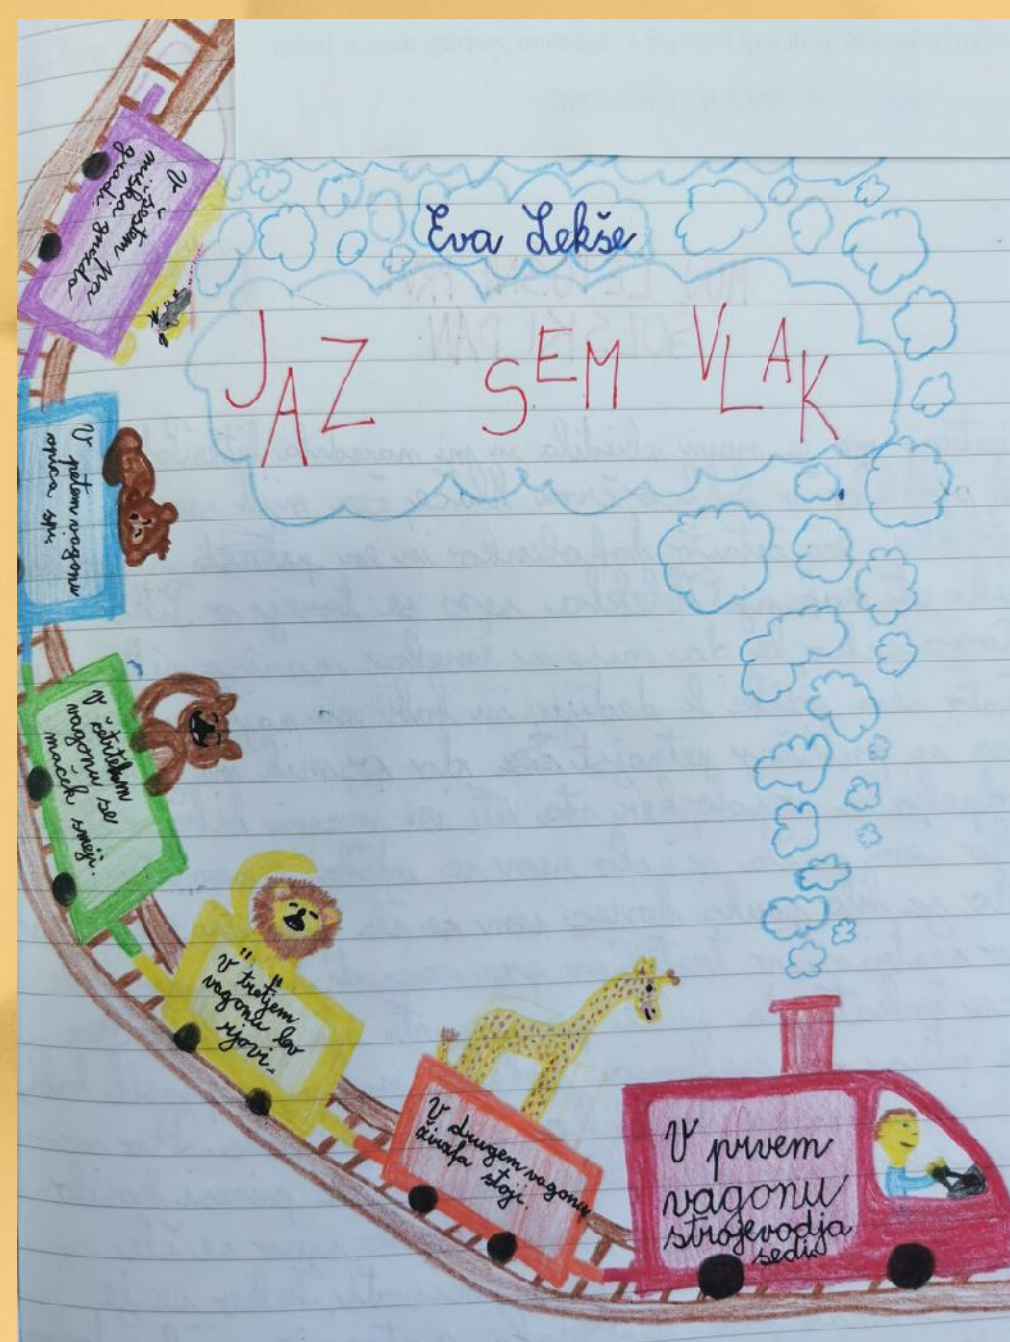 Eva Lekše
JAZ SEM VLAK
V prvem
vagonu
strojevodja
sedi.
V drugem vagonu
žirafa stoji.
V tretjem
vagonu lev
rjovi.
V četrtem
vagonu se
maček smeji.
V petem vagonu
opica spi.
V šestem pa
miška
gnezdo